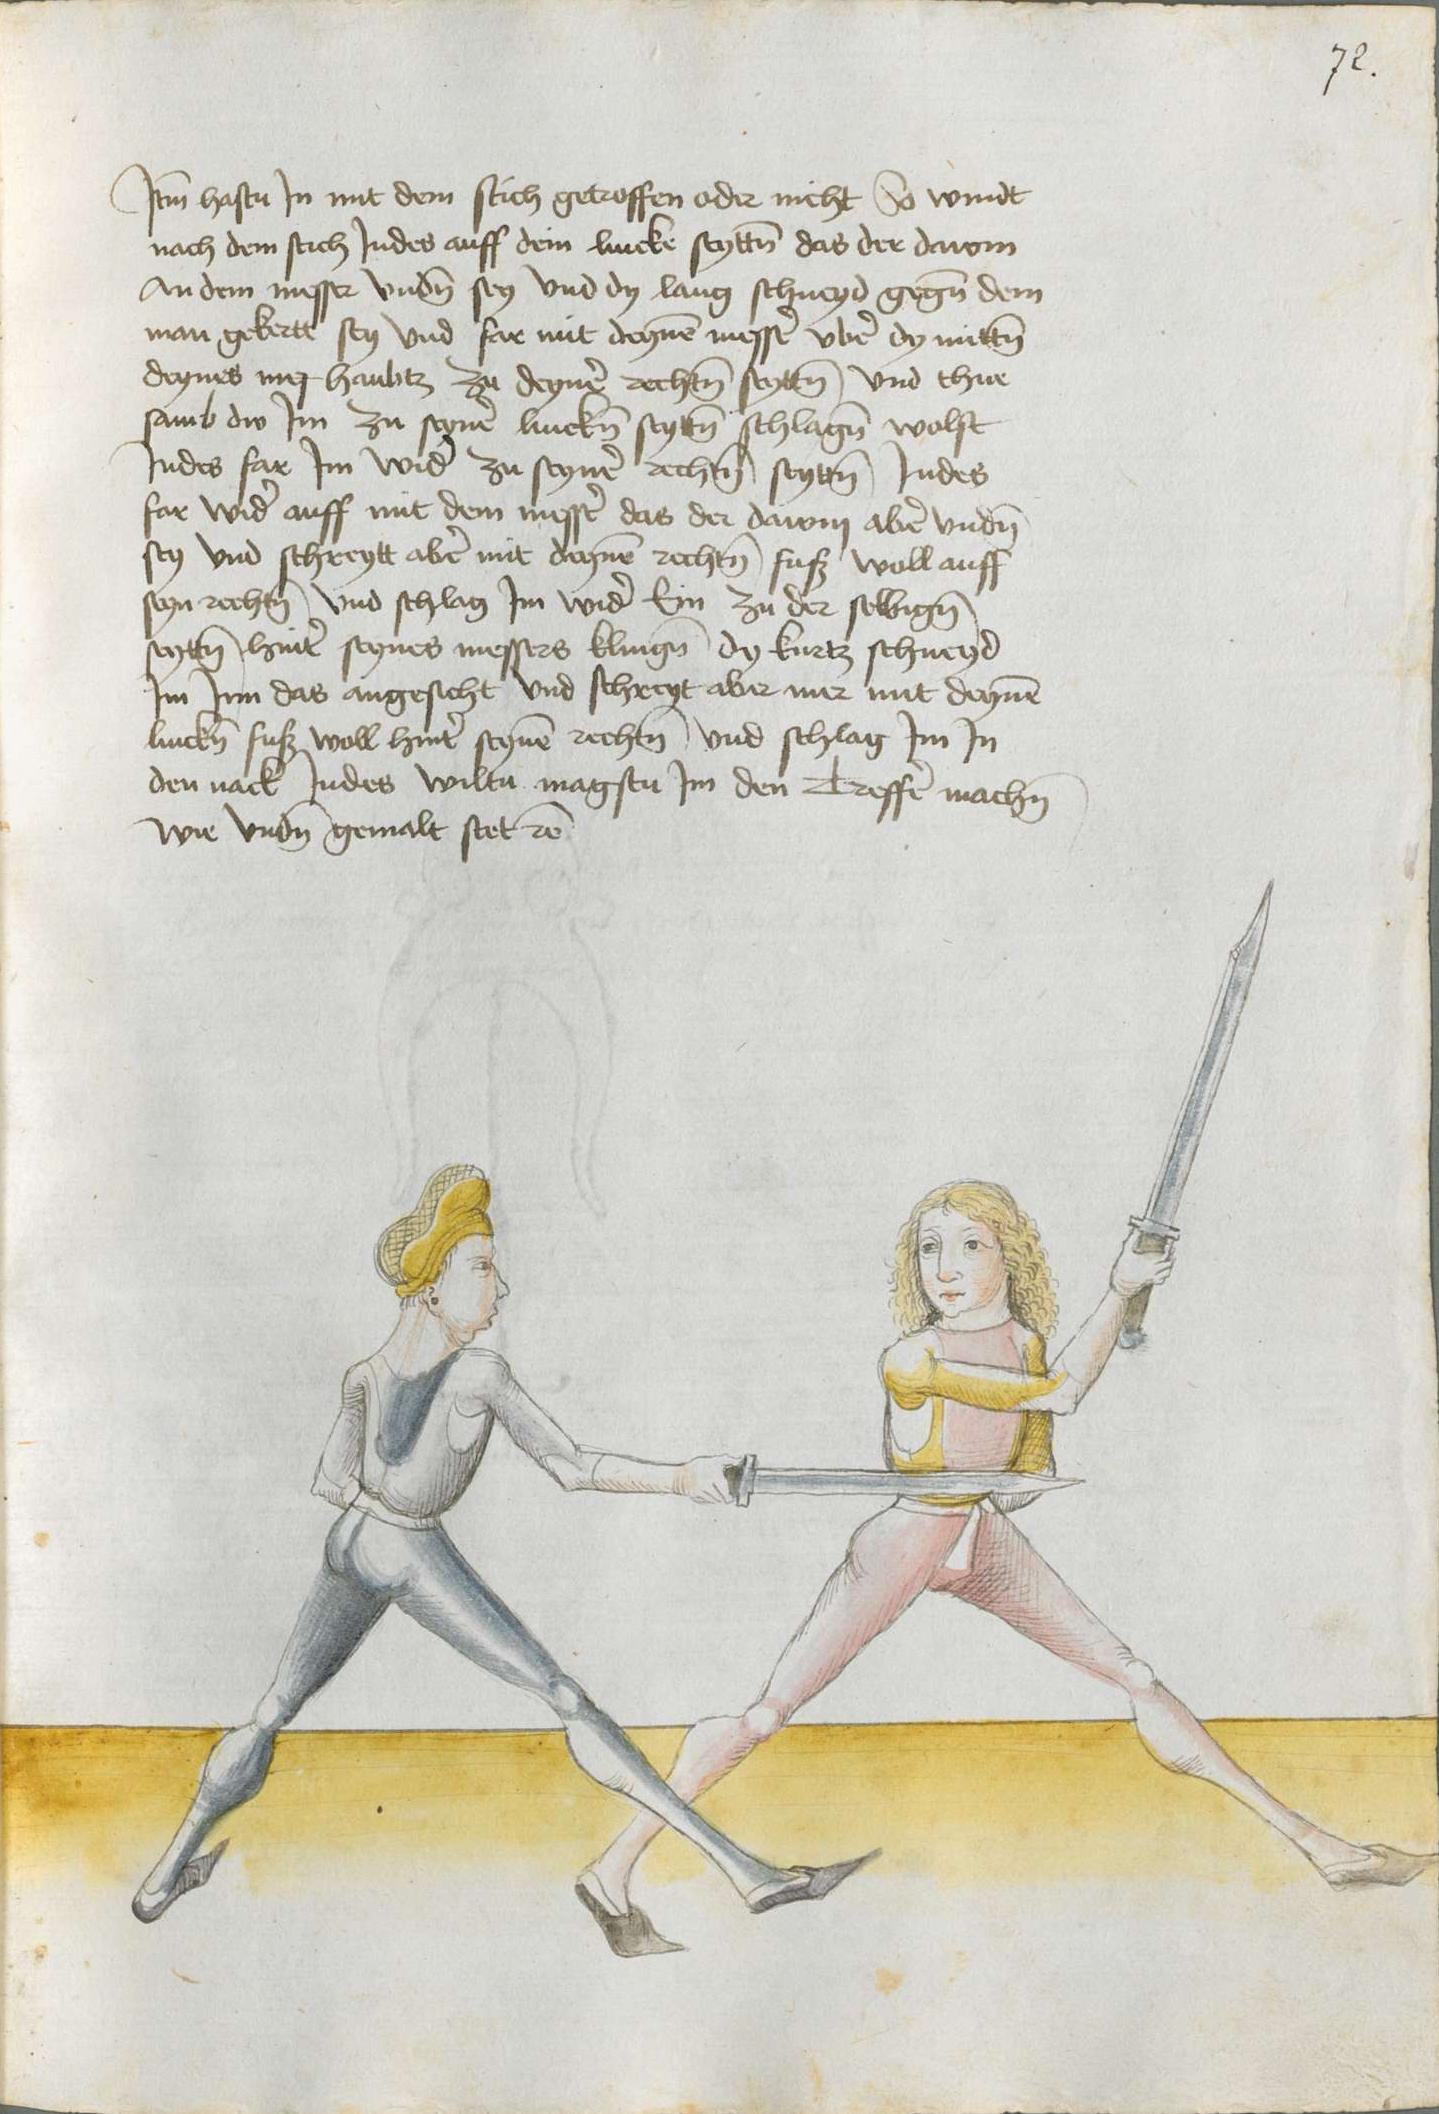 72.
Jtm̄ hastu Jn mit dem stich getroffen oder nicht So windt
nach dem stich Jndes auff dein lincke seyttn̄ das der dawm
An dem messer vndn̄ sey vnd dy lang schneyd gegn̄ dem
man gekertt sey vnd far mit deyne᷑ messe᷑ vbe᷑ dy mittn̄
deynes haubtz zu deyne᷑ rechtn̄ seyttn̄ vnd thue
samb dw Jm zu seyne᷑ linckn̄ seyttn̄ schlagn̄ wolst
Jndes far Jm wide᷑ zu seyne᷑ rechtn̄ seyttn̄ Jndes
far wide᷑ auff mit dem messe᷑ das der dawm abe᷑ vndn̄
sey vnd schreytt abe᷑ mit deynē rechtn̄ fusz woll auff
seyn rechtn̄ vnd schlag Jm wide᷑ Ein zu der selbign̄
seyttn̄ hinte᷑ seynes messers klingn̄ dy kurtz schneyd
Jm Jnn das angesicht vnd schreyt aber mer mit deynē
linckn̄ fusz woll hinte᷑ seynē rechtn̄ vnd schlag Jm Jn
den nack Jndes wiltu magstu Jm den Treffe᷑ machn̄
wie vndn̄ gemalt stet